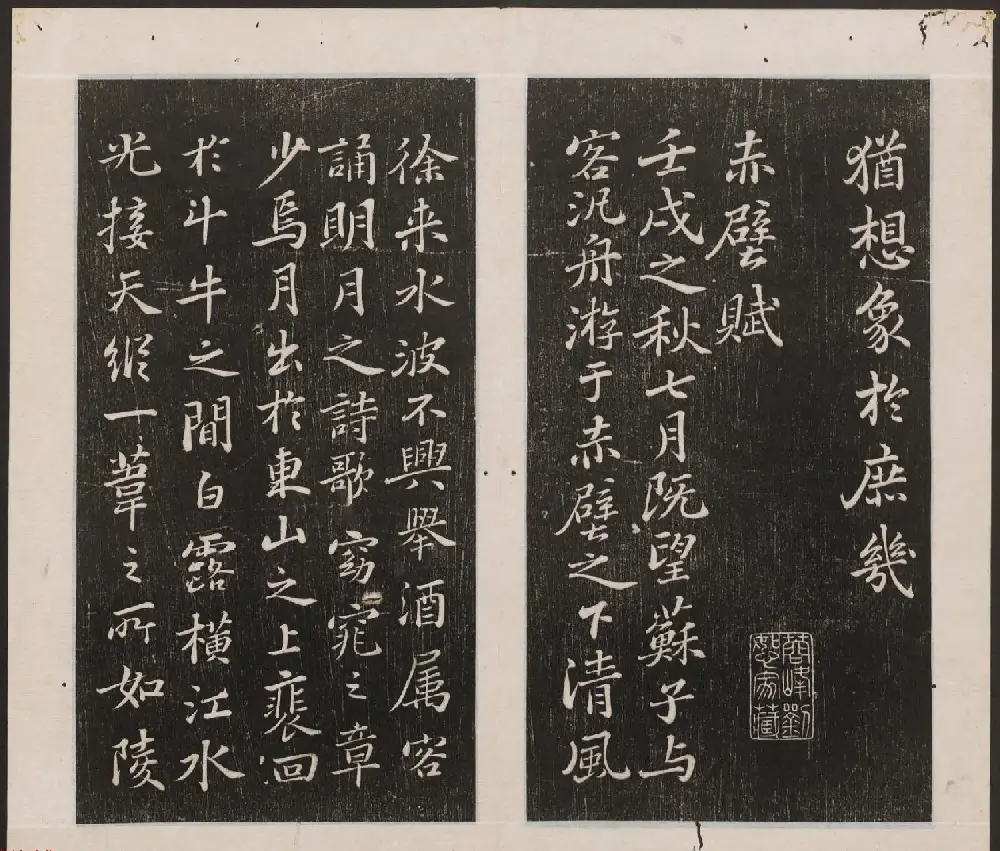 猶想象於庶幾
赤壁賦
壬戌之秋七月既望蘇子与
客汎舟游于赤壁之下清風
徐来水波不興舉酒属客
誦明月之詩歌窈窕之章
少焉月出於東山之上裵回
於斗牛之間白露橫江水
光接天縱一葦之所如陵